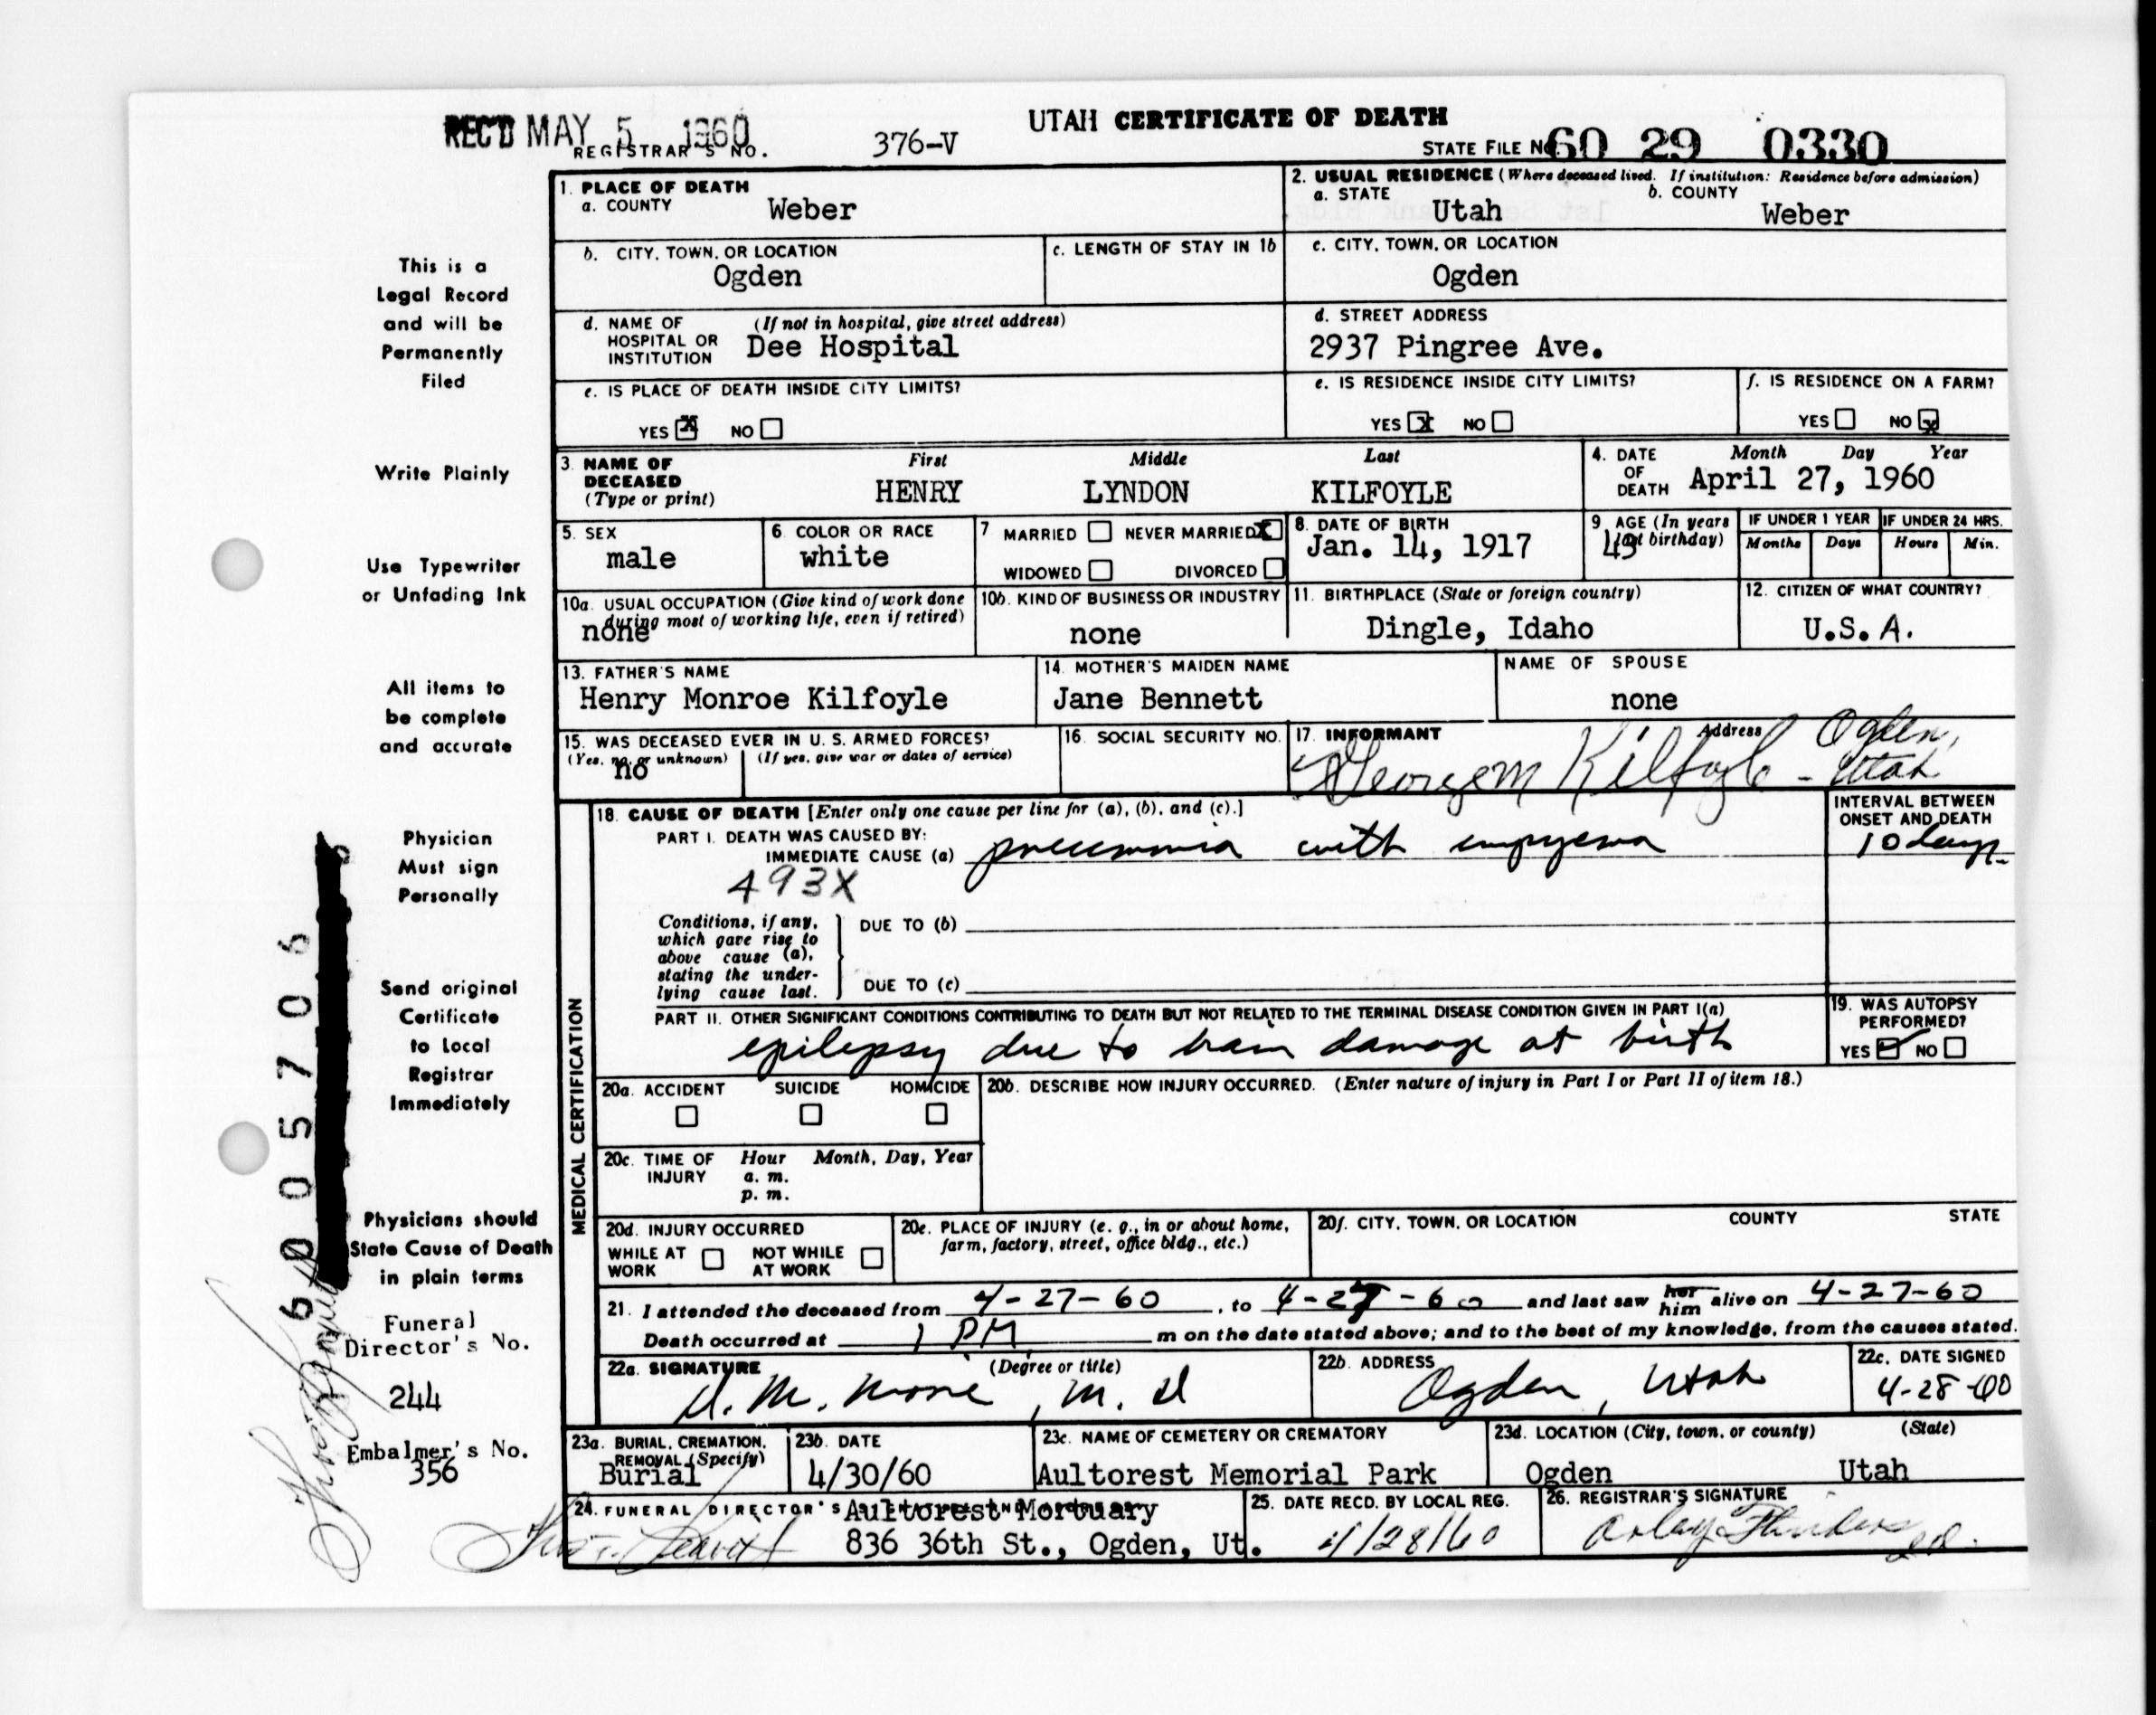 UTAH CERTIFICATE OF DEATH
REC'D MAY 5 1960
REGISTRAR'S NO. 376-V
STATE FILE NO. 60 29 0330
This is a
Legal Record
and will be
Permanently
Filed
Write Plainly
Use Typewriter
or Unfading Ink
All items to
be complete
and accurate
Physician
Must sign
Personally
Send original
Certificate
to Local
Registrar
Immediately
Physicians should
State Cause of Death
in plain terms
Funeral
Director's No.
244
Embalmer's No.
356
6005706
1. PLACE OF DEATH
a. COUNTY Weber
2. USUAL RESIDENCE (Where deceased lived. If institution: Residence before admission)
a. STATE Utah b. COUNTY Weber
b. CITY, TOWN, OR LOCATION
Ogden
c. LENGTH OF STAY IN 1b
c. CITY, TOWN, OR LOCATION
Ogden
d. NAME OF (If not in hospital, give street address)
HOSPITAL OR
INSTITUTION Dee Hospital
d. STREET ADDRESS
2937 Pingree Ave.
e. IS PLACE OF DEATH INSIDE CITY LIMITS?
YES X NO
e. IS RESIDENCE INSIDE CITY LIMITS?
YES X NO
f. IS RESIDENCE ON A FARM?
YES NO X
3. NAME OF DECEASED (Type or print)
First Middle Last
HENRY LYNDON KILFOYLE
4. DATE OF DEATH Month Day Year
April 27, 1960
5. SEX
male
6. COLOR OR RACE
white
7 MARRIED NEVER MARRIED X
WIDOWED DIVORCED
8. DATE OF BIRTH
Jan. 14, 1917
9. AGE (In years last birthday)
43
IF UNDER 1 YEAR IF UNDER 24 HRS.
Months Days Hours Min.
10a. USUAL OCCUPATION (Give kind of work done
during most of working life, even if retired)
none
10b. KIND OF BUSINESS OR INDUSTRY
none
11. BIRTHPLACE (State or foreign country)
Dingle, Idaho
12. CITIZEN OF WHAT COUNTRY?
U.S.A.
13. FATHER'S NAME
Henry Monroe Kilfoyle
14. MOTHER'S MAIDEN NAME
Jane Bennett
NAME OF SPOUSE
none
15. WAS DECEASED EVER IN U. S. ARMED FORCES?
(Yes, no, or unknown) (If yes, give war or dates of service)
no
16. SOCIAL SECURITY NO.
17. INFORMANT Address
George M Kilfoyle - Ogden, Utah
MEDICAL CERTIFICATION
18. CAUSE OF DEATH [Enter only one cause per line for (a), (b), and (c).]
PART I. DEATH WAS CAUSED BY:
IMMEDIATE CAUSE (a) pneumonia with empyema
INTERVAL BETWEEN
ONSET AND DEATH
10 days
493X
Conditions, if any,
which gave rise to
above cause (a),
stating the under-
lying cause last.
DUE TO (b)
DUE TO (c)
PART II. OTHER SIGNIFICANT CONDITIONS CONTRIBUTING TO DEATH BUT NOT RELATED TO THE TERMINAL DISEASE CONDITION GIVEN IN PART I(a)
epilepsy due to brain damage at birth
19. WAS AUTOPSY
PERFORMED?
YES NO
20a. ACCIDENT SUICIDE HOMICIDE
20b. DESCRIBE HOW INJURY OCCURRED. (Enter nature of injury in Part I or Part II of item 18.)
20c. TIME OF INJURY Hour Month, Day, Year
a. m.
p. m.
20d. INJURY OCCURRED
WHILE AT WORK NOT WHILE AT WORK
20e. PLACE OF INJURY (e. g., in or about home,
farm, factory, street, office bldg., etc.)
20f. CITY, TOWN, OR LOCATION COUNTY STATE
21. I attended the deceased from 4-27-60, to 4-27-60 and last saw her him alive on 4-27-60
Death occurred at 1 PM m on the date stated above; and to the best of my knowledge, from the causes stated.
22a. SIGNATURE (Degree or title)
M. D
22b. ADDRESS
Ogden, Utah
22c. DATE SIGNED
4-28-60
23a. BURIAL, CREMATION,
REMOVAL (Specify)
Burial
23b. DATE
4/30/60
23c. NAME OF CEMETERY OR CREMATORY
Aultorest Memorial Park
23d. LOCATION (City, town, or county) (State)
Ogden Utah
24. FUNERAL DIRECTOR'S
Aultorest Mortuary
836 36th St., Ogden, Ut.
25. DATE RECD. BY LOCAL REG.
4/28/60
26. REGISTRAR'S SIGNATURE